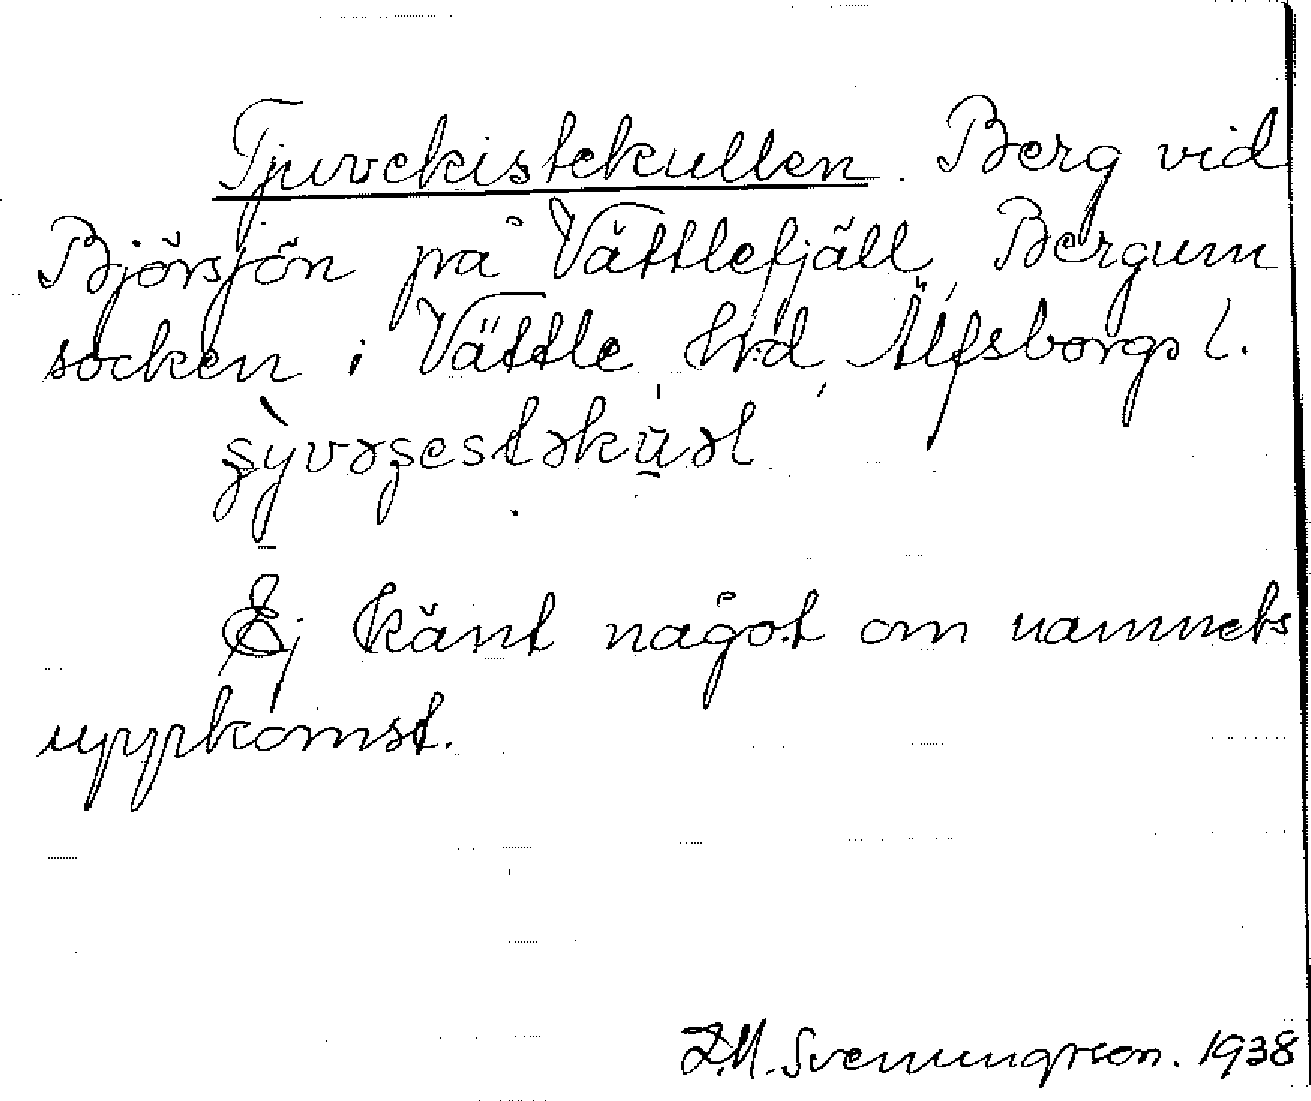 Tjuvekistekullen. Berg vid
Björsjön på Vättlefjäll, Bergum
socken i Vättle hrd, Älfsborgs l.
Ej känt något om namnets
uppkomst.
Svenungsson. 1938